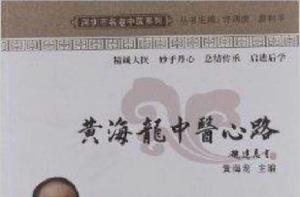 深圳市名老中医系列
丛书主编
精诚大医 妙手丹心 总结传承 启迪后学
黄海龍中醫心路
黄海龙 主编